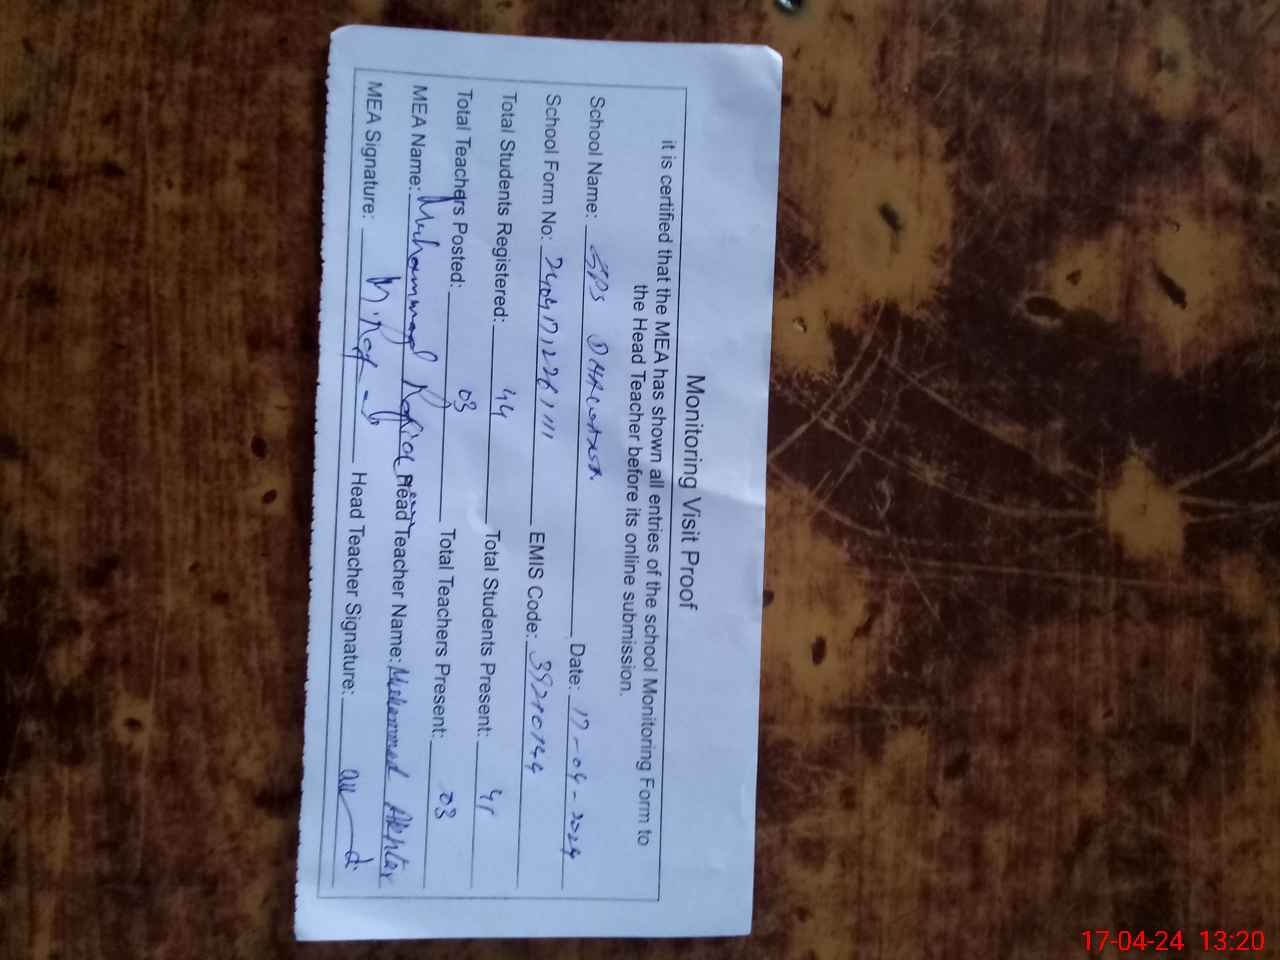 Monitoring Visit Proof
it is certified that the MEA has shown all entries of the school Monitoring Form to
the Head Teacher before its online submission.
School Name: GPS Date: 17-04-2024
School Form No: EMIS Code: 39210144
Total Students Registered: 44 Total Students Present: 41
Total Teachers Posted: 03 Total Teachers Present: 03
MEA Name: Muhammad Head Teacher Name: Muhammad Akhtar
MEA Signature: Head Teacher Signature:
17-04-24 13:20